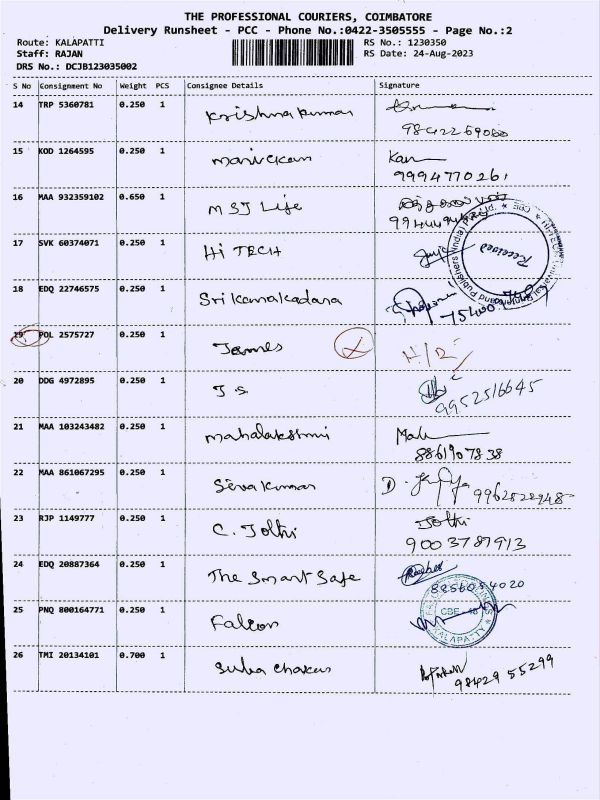 THE PROFESSIONAL COURIERS, COIMBATORE
Delivery Runsheet - PCC - Phone No.:0422-3505555 - Page No.:2
Route: KALAPATTI
RS No.: 1230350
Staff: RAJAN
RS Date: 24-Aug-2023
DRS No.: DCJB123035002
S No Consignment No Weight PCS Consignee Details Signature
14 TRP 5360781 0.250 1 Krishna kumar
15 KOD 1264595 0.250 1 Kan
9994770261
16 MAA 932359102 0.650 1 MSJ Life
17 SVK 60374071 0.250 1 Hi TECH
Received
18 EDQ 22746575 0.250 1
19 POL 2575727 0.250 1 James
20 DDG 4972895 0.250 1 J s
9952516645
21 MAA 103243482 0.250 1 mahalakshmi
8861907838
22 MAA 861067295 0.250 1 Siva kumar
23 RJP 1149777 0.250 1 C. Jothi Jothi
9003787913
24 EDQ 20887364 0.250 1 The Smart Safe
25 PNQ 800164771 0.250 1 Falcon
26 TMI 20134101 0.700 1
98429 55299